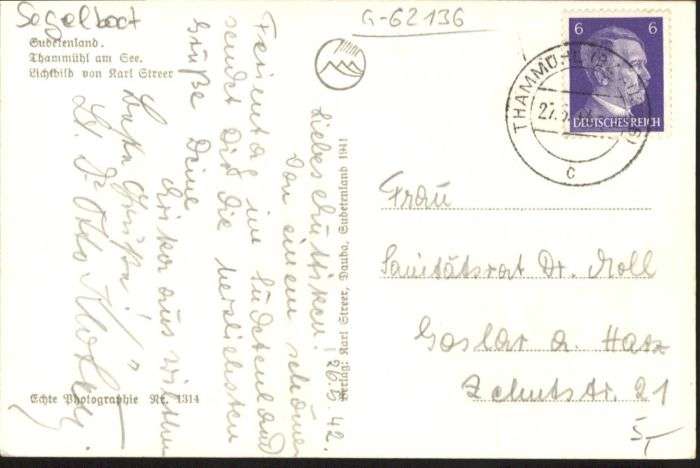 Segelboot
G-62136
Sudetenland.
Thammühl am See.
Lichtbild von Karl Streer
6 6
DEUTSCHES REICH
THAMMÜHL
27.
c
Frau
Sanitätsrat Dr. Moll
Goslar a. Harz
Zehntstr. 21
26.5.42.
Liebes
Von einem schönen
Ferientag im Sudetenland
sendet Dir die herzlichsten
Grüße Deine
aus
Beste Grüße!
Dr. Otto
Verlag: Karl Streer, Dauba, Sudetenland 1941
Echte Photographie Nr. 1314